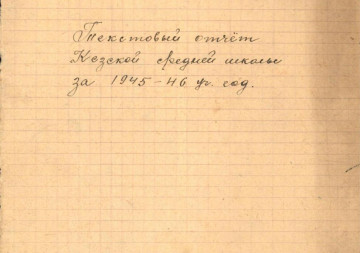 Текстовый отчёт
Кезской средней школы
за 1945-46 уч. год.